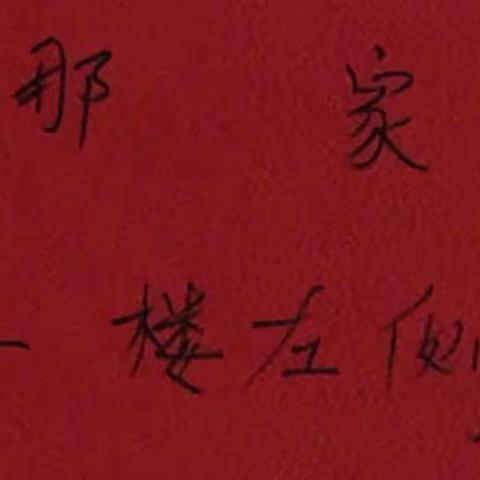 那 家
楼左侧